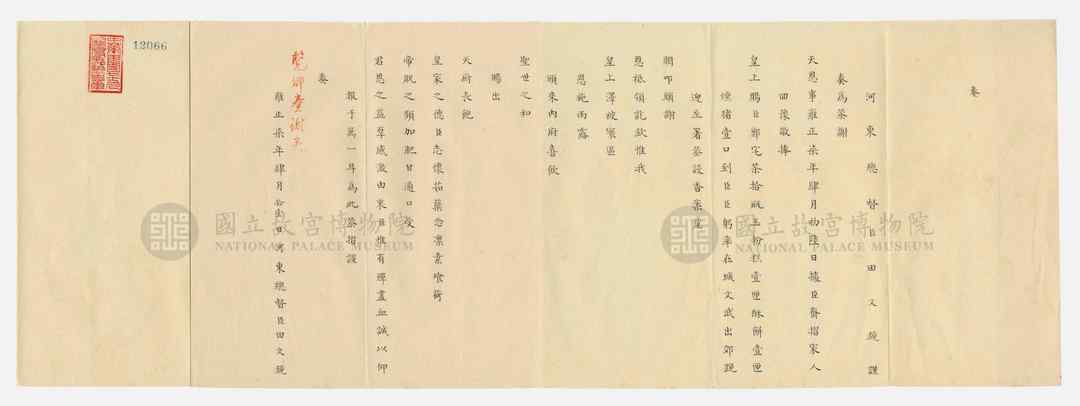 奏
河東總督臣田文鏡謹
奏為恭謝
天恩事雍正柒年肆月初 日據臣齎摺家人
回豫敬捧
皇上賜臣鄭宅茶拾瓶玉粉糕壹匣酥餅壹匣
燻猪壹口到臣臣躬率在城文武出郊跪
迎至署恭設香案望
闕叩頭謝
恩祗領訖欽惟我
皇上澤被寰區
恩施雨露
頒來內府喜飲
聖世之和
賜出
天府長飽
皇家之德臣志懷茹蘗念凛素飧荷
帝貺之頻加肥甘適口受
君恩之益厚感激由衷臣惟有殫盡血誠以仰
報于萬一耳為此恭摺謹
奏
覽卿奏謝矣
雍正柒年肆月 日河東總督臣田文鏡
12066
國立故宮博物院
NATIONAL PALACE MUSEUM
國立故宮博物院
NATIONAL PALACE MUSEUM